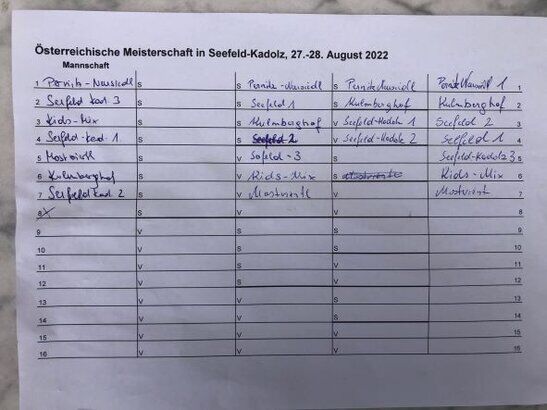 Österreichische Meisterschaft in Seefeld-Kadolz, 27.-28. August 2022
Mannschaft
1 Pernitz-Neusiedl S S Pernitz-Neusiedl S Pernitz Neusiedl Pernitz Neusiedl 1 1
2 Seefeld Kad. 3 S S Seefeld 1 S Kulmberghof Kulmberghof 2
3 Kids-Mix S V Kulmberghof V Seefeld-Kadolz 1 Seefeld 2 3
4 Seefeld-Kad. 1 S S Seefeld 2 V Seefeld-Kadolz 2 Seefeld 1 4
5 Mostviertl V V Seefeld-3 S Seefeld-Kadolz 3 5
6 Kulmberghof S V Kids-Mix S Kids-Mix 6
7 Seefeld Kad. 2 S V Mostviertl V Mostviertl 7
8 S V V 8
9 V S S 9
10 V S V 10
11 V S V 11
12 V S V 12
13 V V S 13
14 V V S 14
15 V V V 15
16 V V V 16